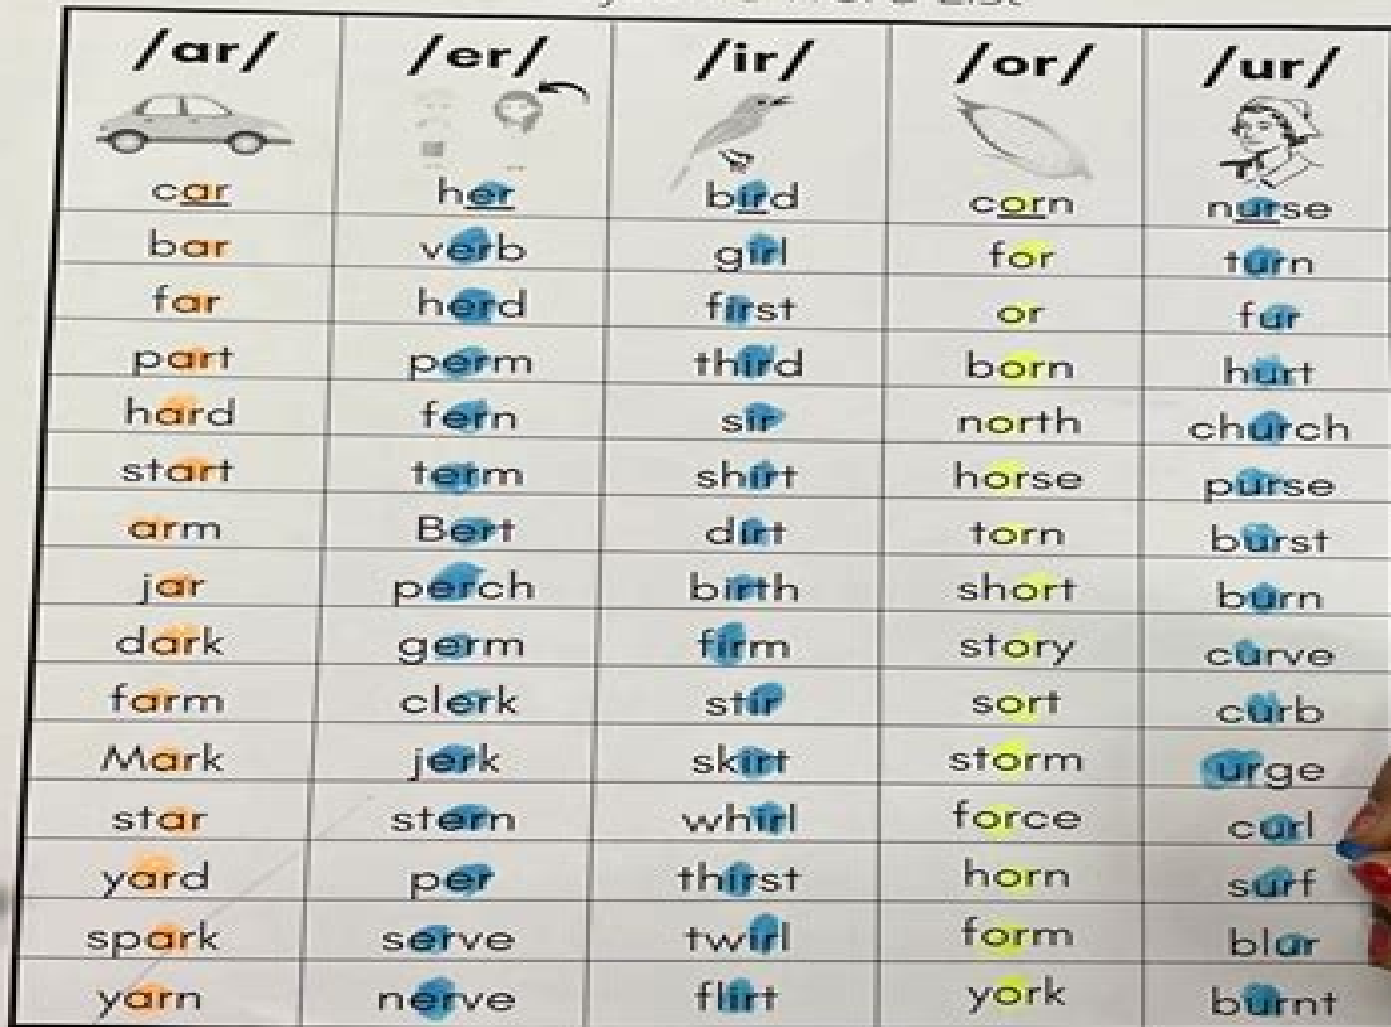 /ar/ /er/ /ir/ /or/ /ur/
car her bird corn nurse
bar verb girl for turn
far herd first or fur
part perm third born hurt
hard fern sir north church
start term shirt horse purse
arm Bert dirt torn burst
jar perch birth short burn
dark germ firm story curve
farm clerk stir sort curb
Mark jerk skirt storm urge
star stern whirl force curl
yard per thirst horn surf
spark serve twirl form blur
yarn nerve flirt york burnt